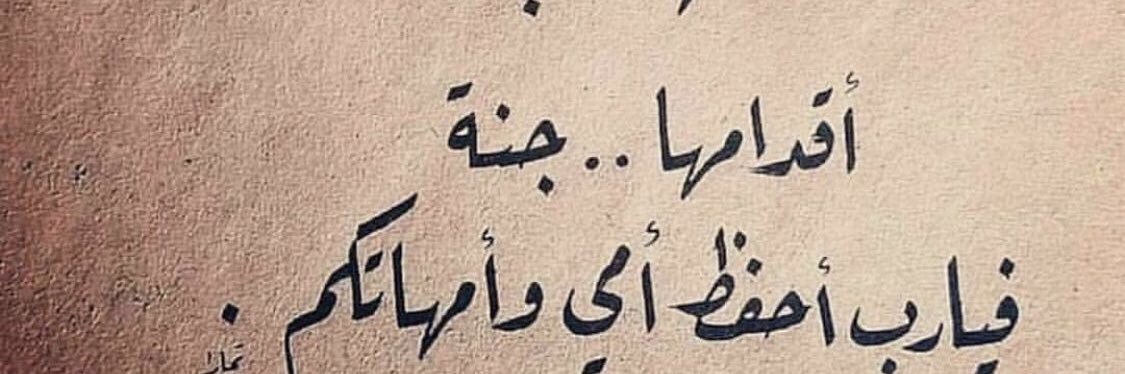 أقدامها .. جنة
فيارب أحفظ أمي وأمهاتكم .